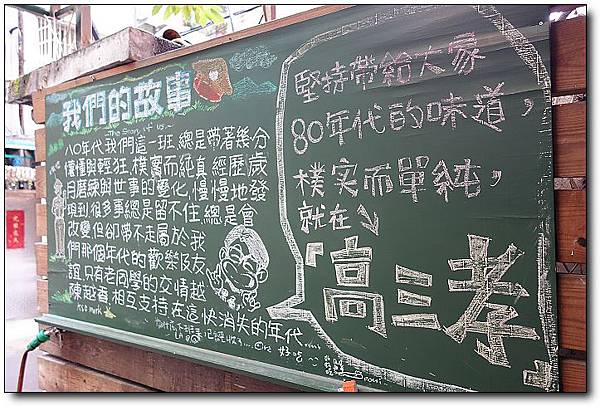 我們的故事
The Story of us~
80年代我們這一班,總是帶著幾分
懵懂與輕狂,樸實而純真,經歷歲
月磨練與世事的變化,慢慢地發
現到很多事總是留不住,總是會
改變但卻帶不走屬於我
們那個年代的歡樂及友
誼,只有老同學的交情越
陳越香,相互支持在這快消失的年代
堅持帶給大家
80年代的味道,
樸實而單純,
就在↘
「高三孝」